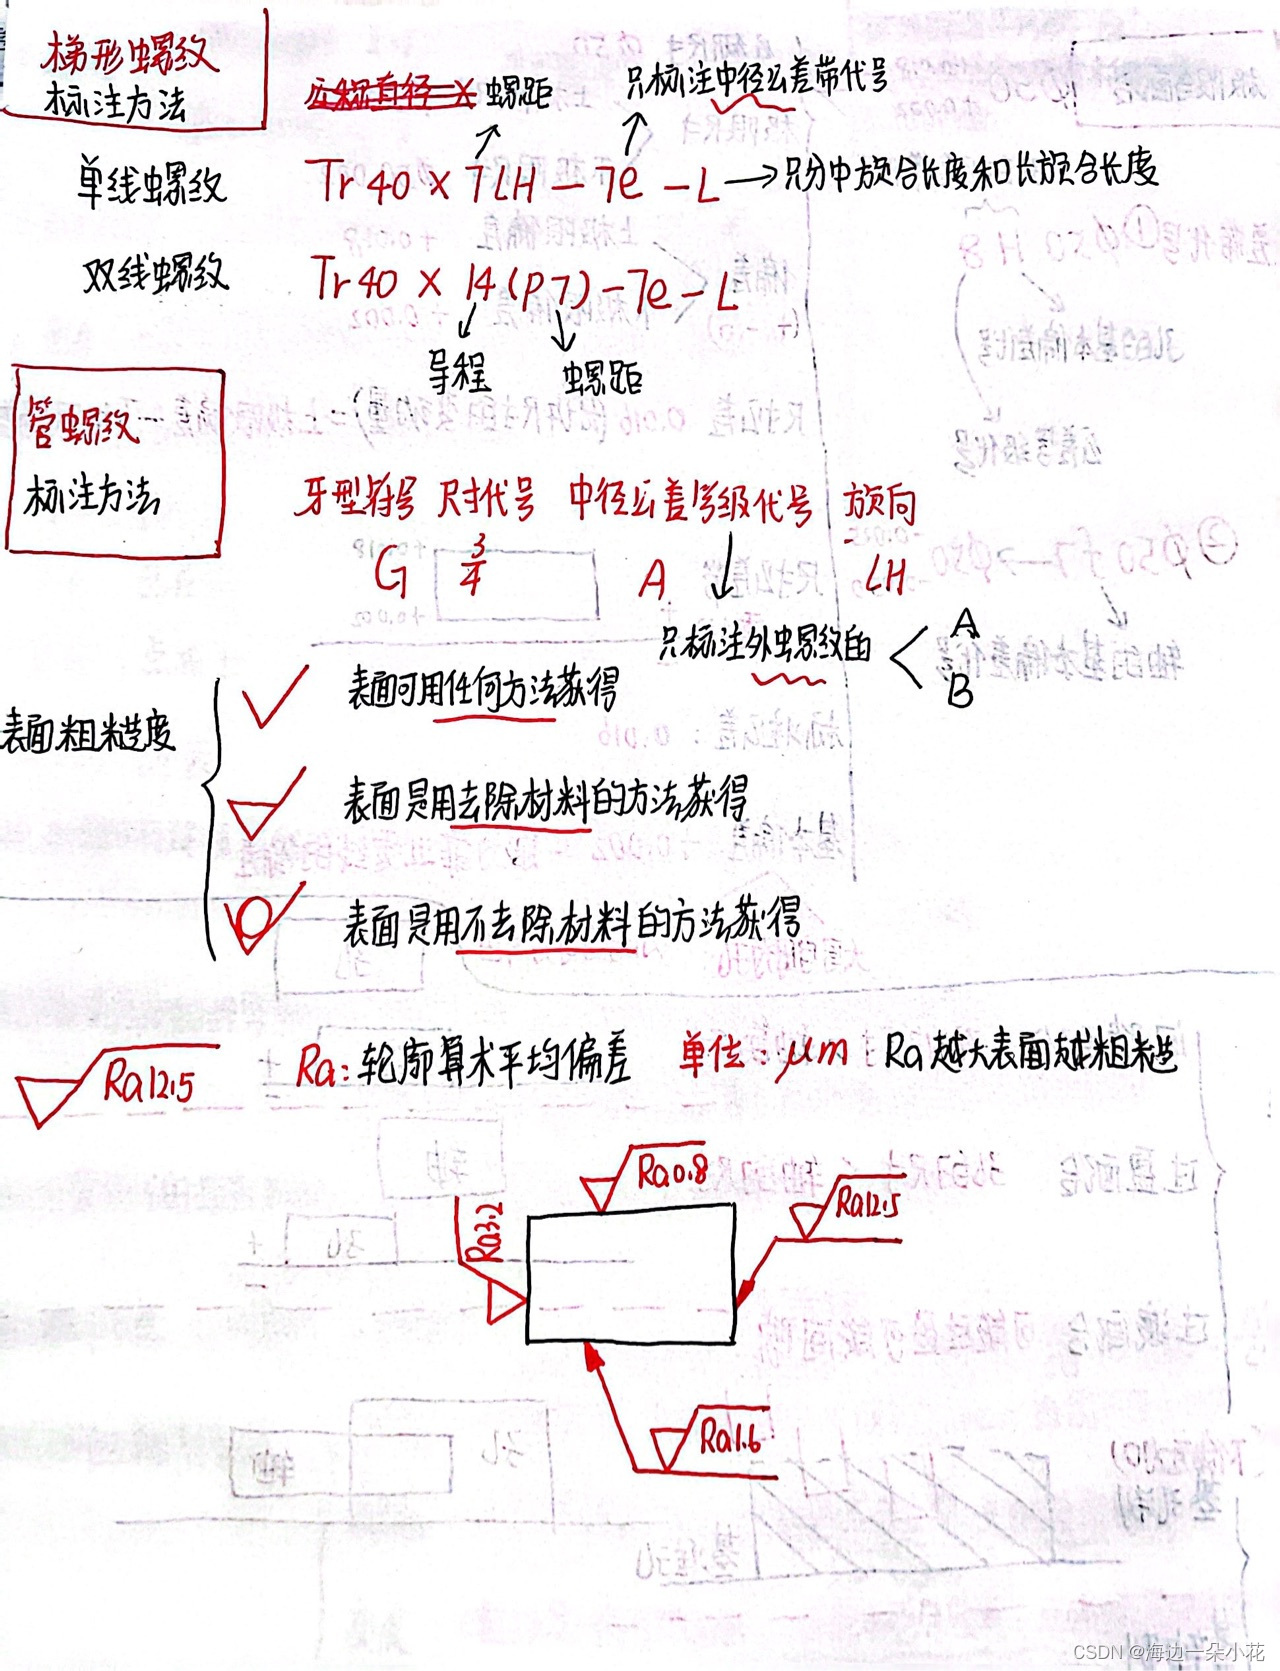 梯形螺纹
标注方法
公称直径 × 螺距
只标注中径公差带代号
单线螺纹 Tr40×7LH-7e-L→只分中旋合长度和长旋合长度
双线螺纹 Tr40×14(P7)-7e-L
导程 螺距
管螺纹
标注方法
牙型符号 尺寸代号 中径公差等级代号 旋向
G 3/4 A LH
只标注外螺纹的 A
B
表面粗糙度
表面可用任何方法获得
表面是用去除材料的方法获得
表面是用不去除材料的方法获得
Ra12.5 Ra:轮廓算术平均偏差 单位:μm Ra越大表面越粗糙
Ra0.8
Ra3.2
Ra12.5
Ra1.6
CSDN @海边一朵小花